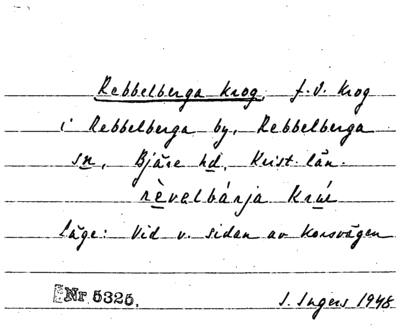 Rebbelberga krog, f.d. krog
i Rebbelberga by, Rebbelberga
sn, Bjäre hd, Krist. län.
rèvelbárja
Läge: Vid v. sidan av korsvägen
Nr. 5325. I. Ingers 1948